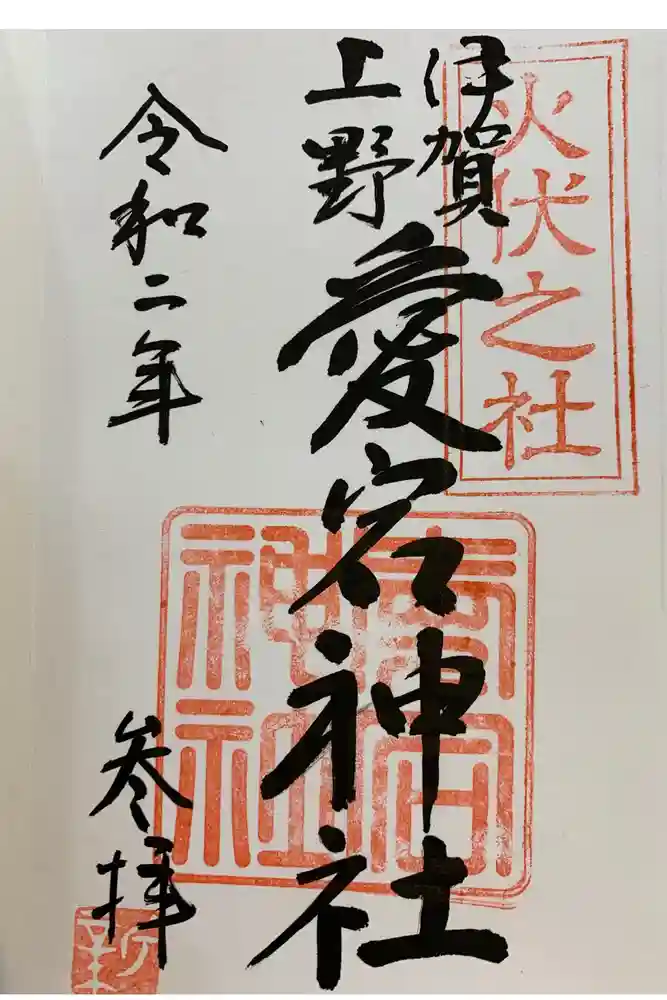 火伏之社
伊賀
上野
愛宕神社
愛宕
神社
令和二年
参拝